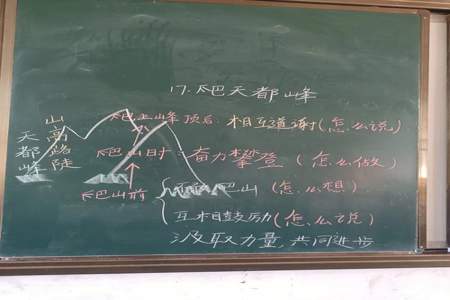 17.爬天都峰
天都峰
山高路陡
爬上峰顶后 相互道谢(怎么说)
爬山时:奋力攀登(怎么做)
爬山前
爬山(怎么想)
互相鼓励(怎么说)
汲取力量,共同进步